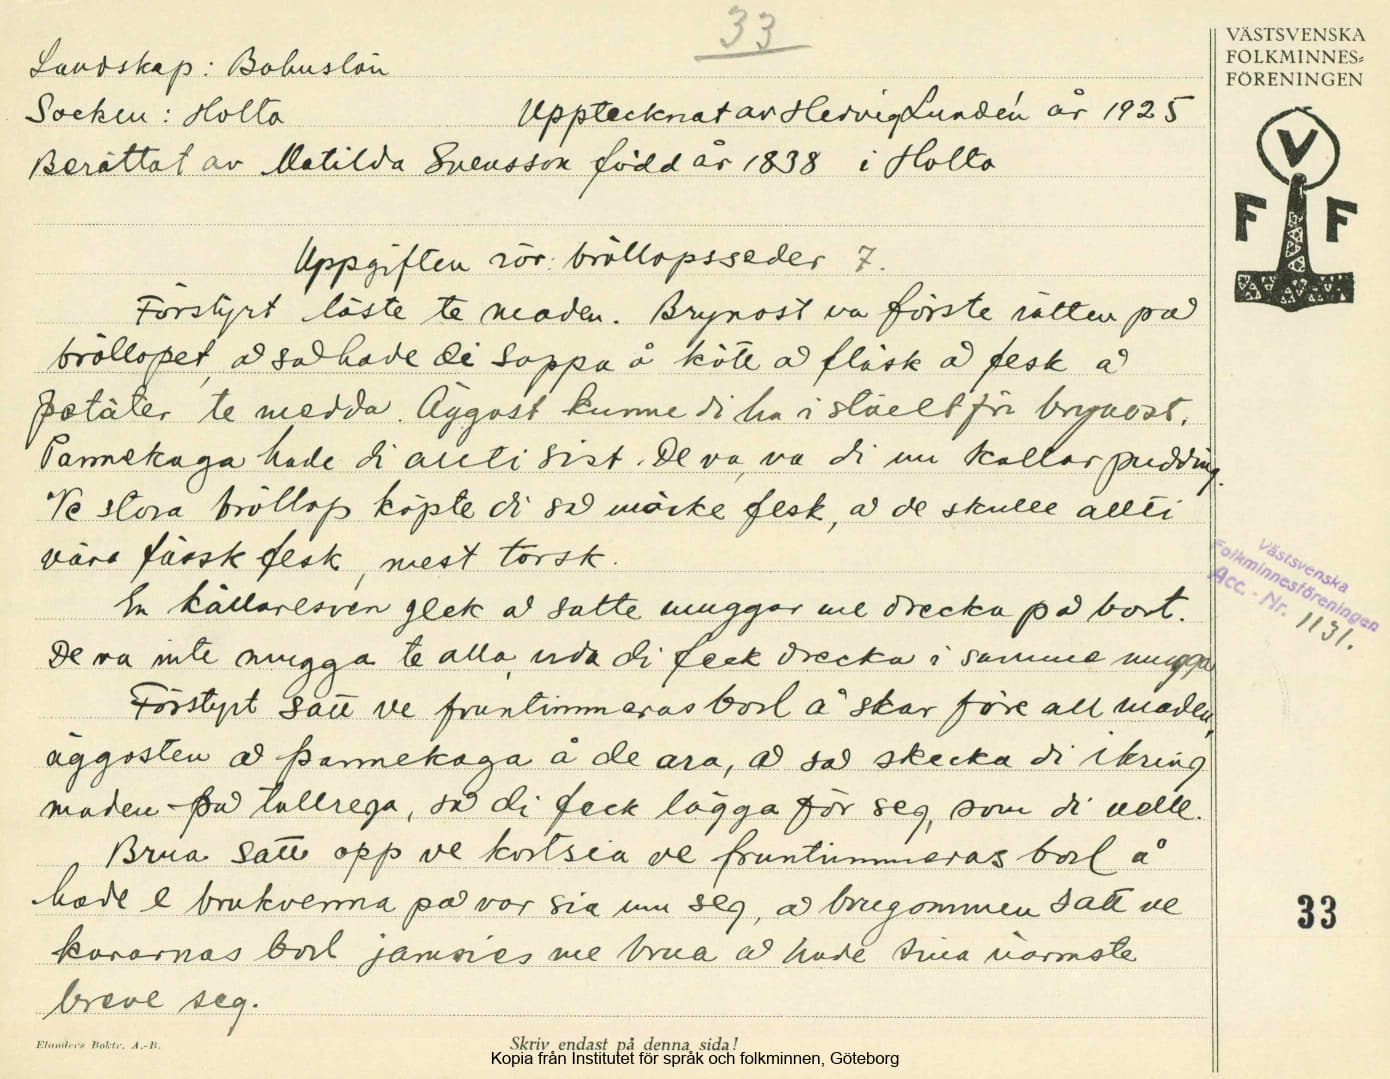 33
Landskap: Bohuslän
Socken: Holta Upptecknat av Hedvig Lundén år 1925
Berättat av Matilda Svensson född år 1838 i Holta
Uppgiften rör: bröllopsseder 7.
Förstyrt läste te maden. Brynost va förste rätten på
bröllopet, å så hade di soppa å kött å fläsk å fesk å
petäter te medda. Äggost kunne di ha i stäelt för brynost.
Pannekaga hade di allti sist. De va, va di nu kallar pudding.
Ve stora bröllop köpte di så möcke fesk, å de skulle allti
vära färsk fesk, mest torsk.
En källaresven geck å satte muggar me drecka på bort.
De va inte mugga te alla, uda di feck drecka i samme mugga
Förstyrt satt ve fruntimmeras bord å skar före all maden,
äggosten å pannekaga å de ara, å så skecka di ikring
maden på tallrega, så di feck lägga för seg, som di velle.
Brua satt opp ve kortsia ve fruntimmeras bord å
hade e brukvenna på var sia um seg, å brugommen satt ve
kararnas bord jamsies me brua å hade sina närmste
breve seg.
VÄSTSVENSKA
FOLKMINNES=
FÖRENINGEN
V
F F
Västsvenska
Folkminnesföreningen
Acc.-Nr. 1131.
33
Elanders Boktr. A.-B.
Skriv endast på denna sida!
Kopia från Institutet för språk och folkminnen, Göteborg